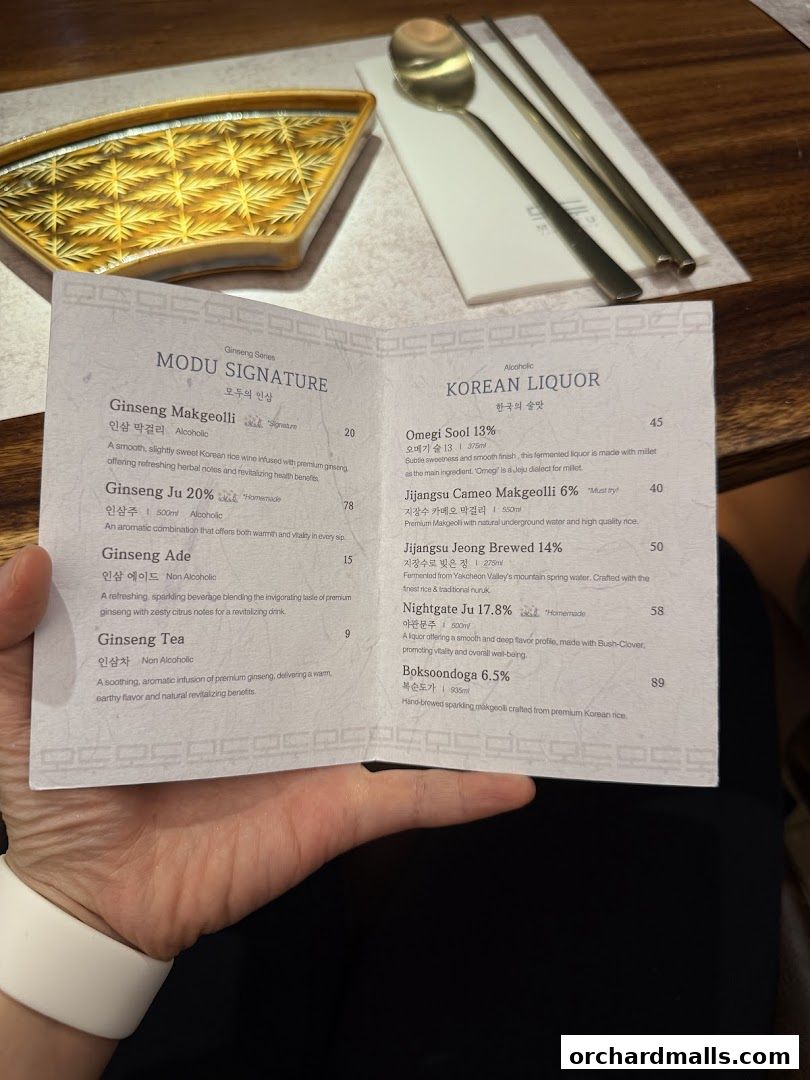 Ginseng Series
MODU SIGNATURE
모두의 인삼
Ginseng Makgeolli *Signature 20
인삼 막걸리 Alcoholic
A smooth, slightly sweet Korean rice wine infused with premium ginseng,
offering refreshing herbal notes and revitalizing health benefits.
Ginseng Ju 20% *Homemade 78
인삼주 | 500ml Alcoholic
An aromatic combination that offers both warmth and vitality in every sip.
Ginseng Ade 15
인삼 에이드 Non Alcoholic
A refreshing, sparkling beverage blending the invigorating taste of premium
ginseng with zesty citrus notes for a revitalizing drink.
Ginseng Tea 9
인삼차 Non Alcoholic
A soothing, aromatic infusion of premium ginseng, delivering a warm,
earthy flavor and natural revitalizing benefits.
Alcoholic
KOREAN LIQUOR
한국의 술맛
Omegi Sool 13% 45
오메기 술 13 | 375ml
Subtle sweetness and smooth finish, this fermented liquor is made with millet
as the main ingredient. 'Omegi' is a Jeju dialect for millet.
Jijangsu Cameo Makgeolli 6% *Must try! 40
지장수 카메오 막걸리 | 550ml
Premium Makgeolli with natural underground water and high quality rice.
Jijangsu Jeong Brewed 14% 50
지장수로 빚은 정 | 275ml
Fermented from Yakcheon Valley's mountain spring water. Crafted with the
finest rice & traditional nuruk.
Nightgate Ju 17.8% *Homemade 58
야관문주 | 500ml
A liquor offering a smooth and deep flavor profile, made with Bush-Clover,
promoting vitality and overall well-being.
Boksoondoga 6.5% 89
복순도가 | 935ml
Hand-brewed sparkling makgeolli crafted from premium Korean rice.
orchardmalls.com